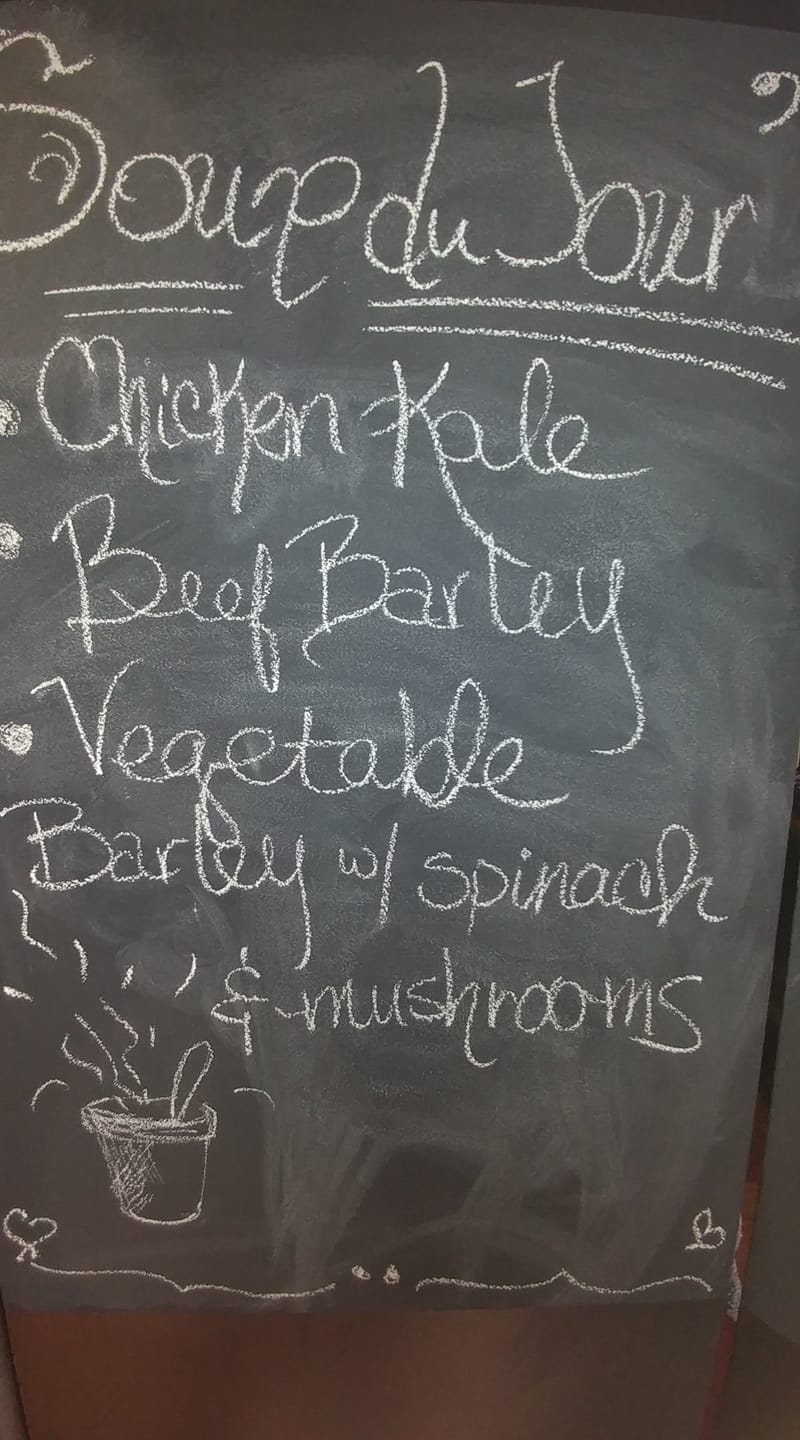 Soup du Jour
• Chicken Kale
• Beef Barley
• Vegetable
Barley w/ spinach
& mushrooms